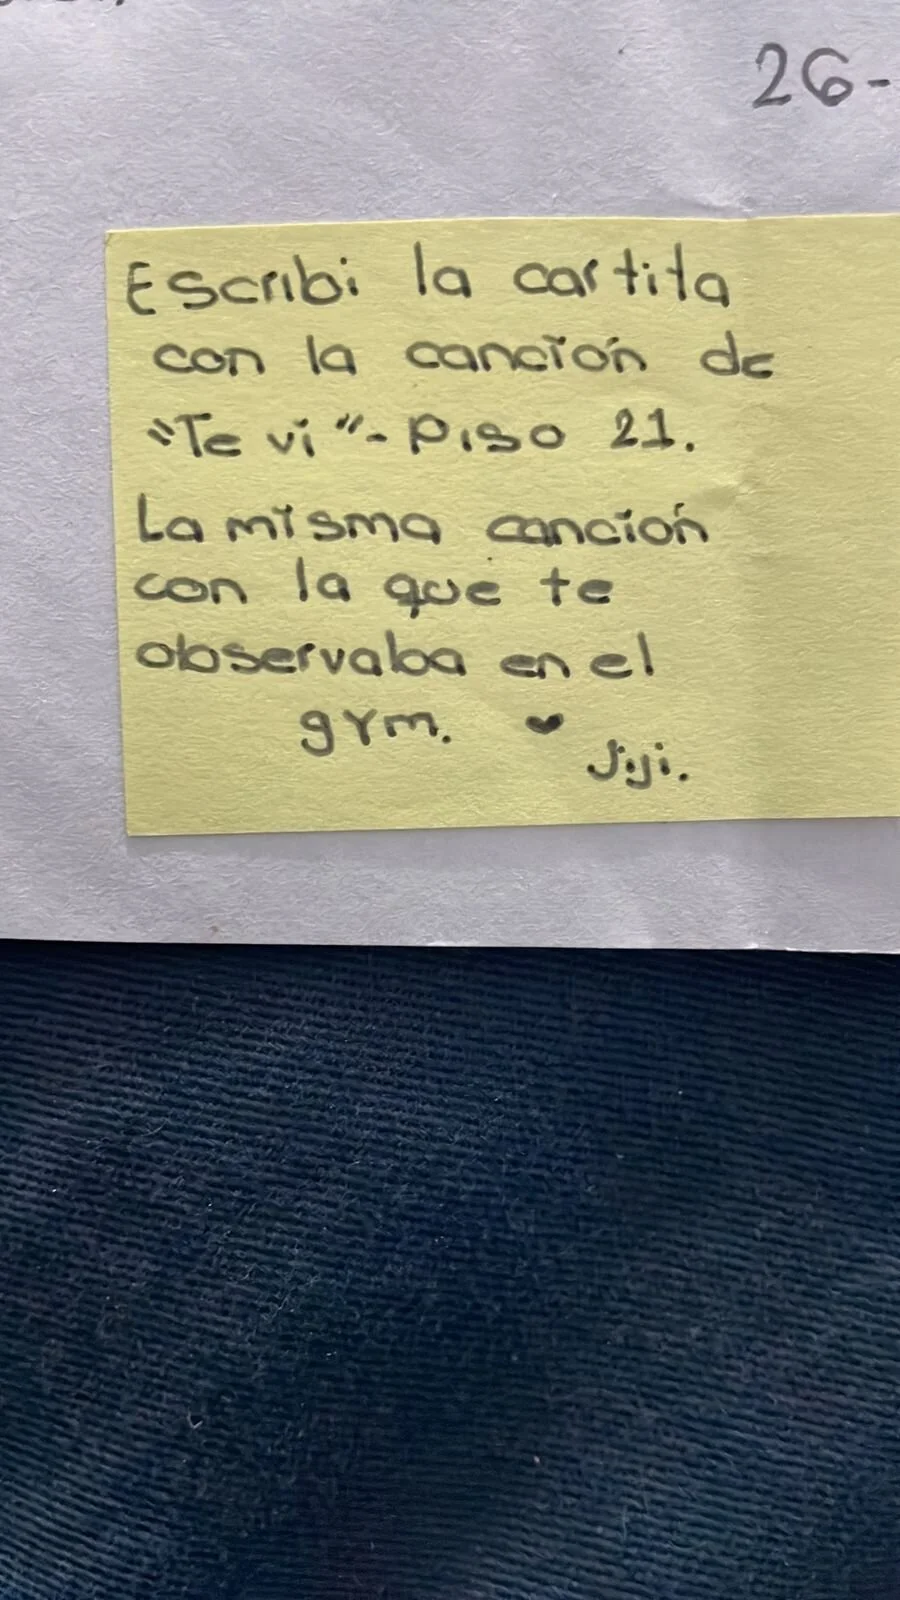 26-
Escribi la cartita
con la canción de
"Te vi"- Piso 21.
La misma canción
con la que te
observaba en el
gym. ♥
Jiji.